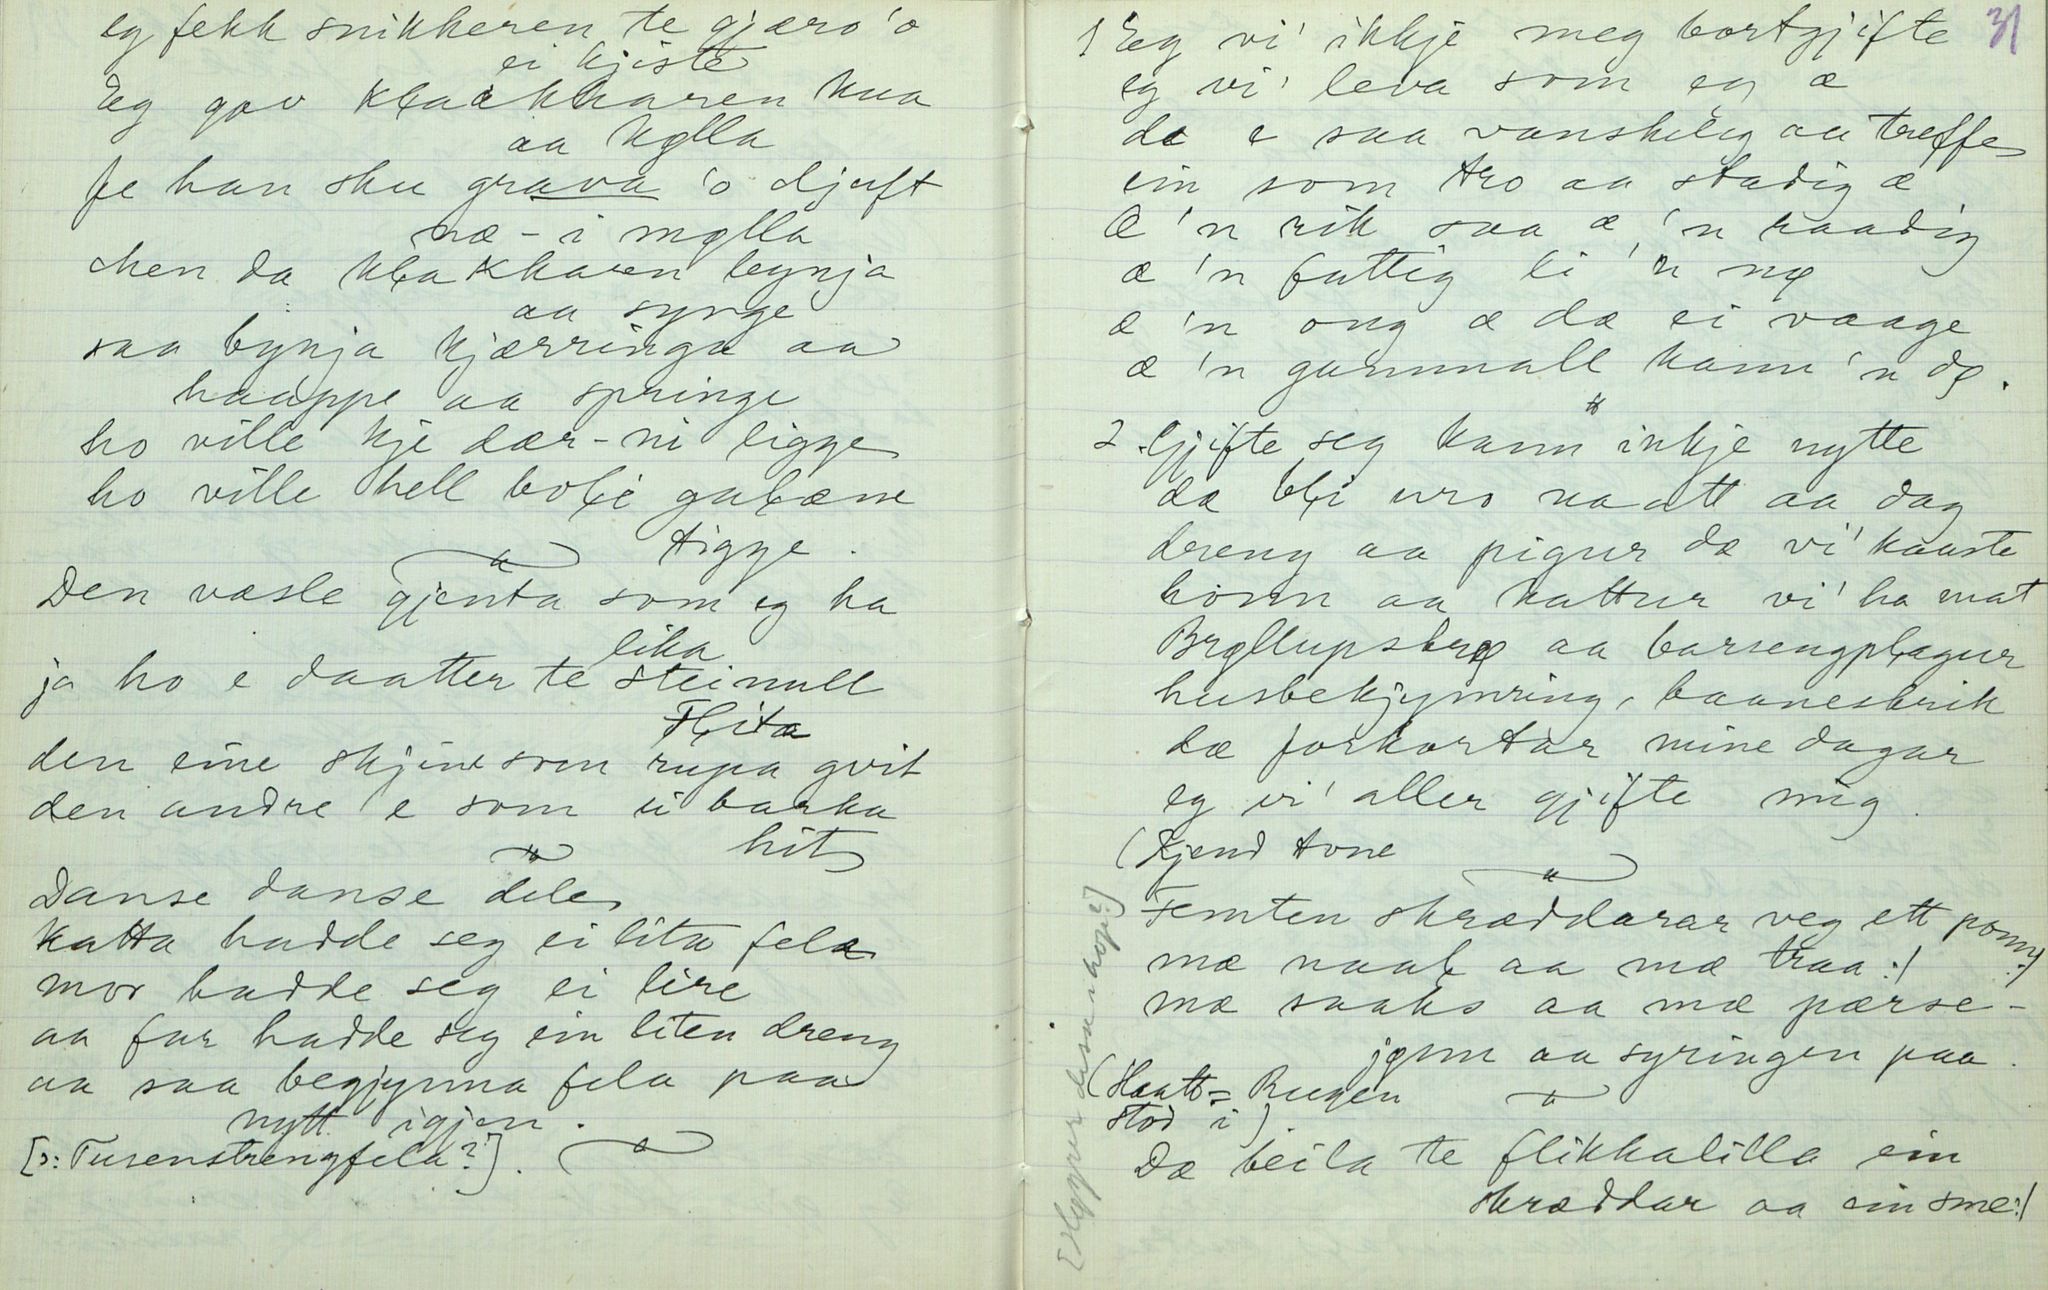 eg fekk snikkeren te gjæra 'o
ei kjiste
Eg gav klåkkaren kua
aa kølla
fe han sku grava 'o djuft
næ - i mølla
Men da klakkaren bynja
aa synge
saa bynja kjærringa aa
haappe aa springe
ho ville kje dær-ni ligge
ho ville hell bole galæne
tigge.
Den væsle gjenta som eg ha
lika
ja ho e daatter te steinull
Flita
den eine skjine som rupa gvit
den andre e som ei barka
hit
Danse danse dele
Katta hadde seg ei lita fela
mor hadde seg ei lire
aa far hadde seg ein liten dreng
aa saa begjynna fela paa
nytt igjen.
[ɔ: Tusenstrengfela?].
31
1 Eg vi' ikkje meg bortgjifte
eg vi' leva som eg æ
de e saa vanskelig aa treffe
ein som tro aa stadig æ
Æ 'n rik saa æ 'n raadig
æ 'n fattig li 'n nø
æ 'n ong æ dæ ei vaage
æ 'n gammall kann 'n dø.
2. Gjifte seg kann inkje nytte
dæ bli uro naatt aa dag
dreng aa pigur dæ vi' kaaste
bonn aa kattur vi' ha mat
Brøllupsbrø aa barsengplagur
husbekjymring, baanesbrik
dæ forkortar mine dagar
eg vi' aller gjifte mig
(Kjend tone
Femten skræddarar veg ett ponn :/
mæ naal aa mæ traa :/
mæ saaks aa mæ pærse-
jønn aa syringen paa.
(Haatt = Rugen
stod i)
[Sleppur desse ihop?]
Dæ beila te flikkalilla ein
skræddar aa ein sme :/